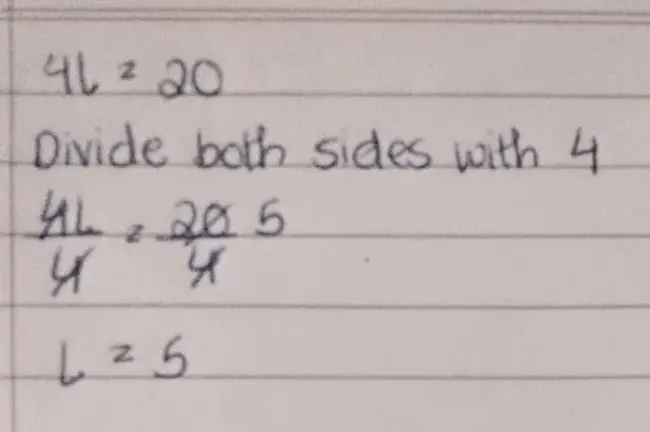 4L = 20
Divide both sides with 4
4L/4 = 20/4 5
L = 5